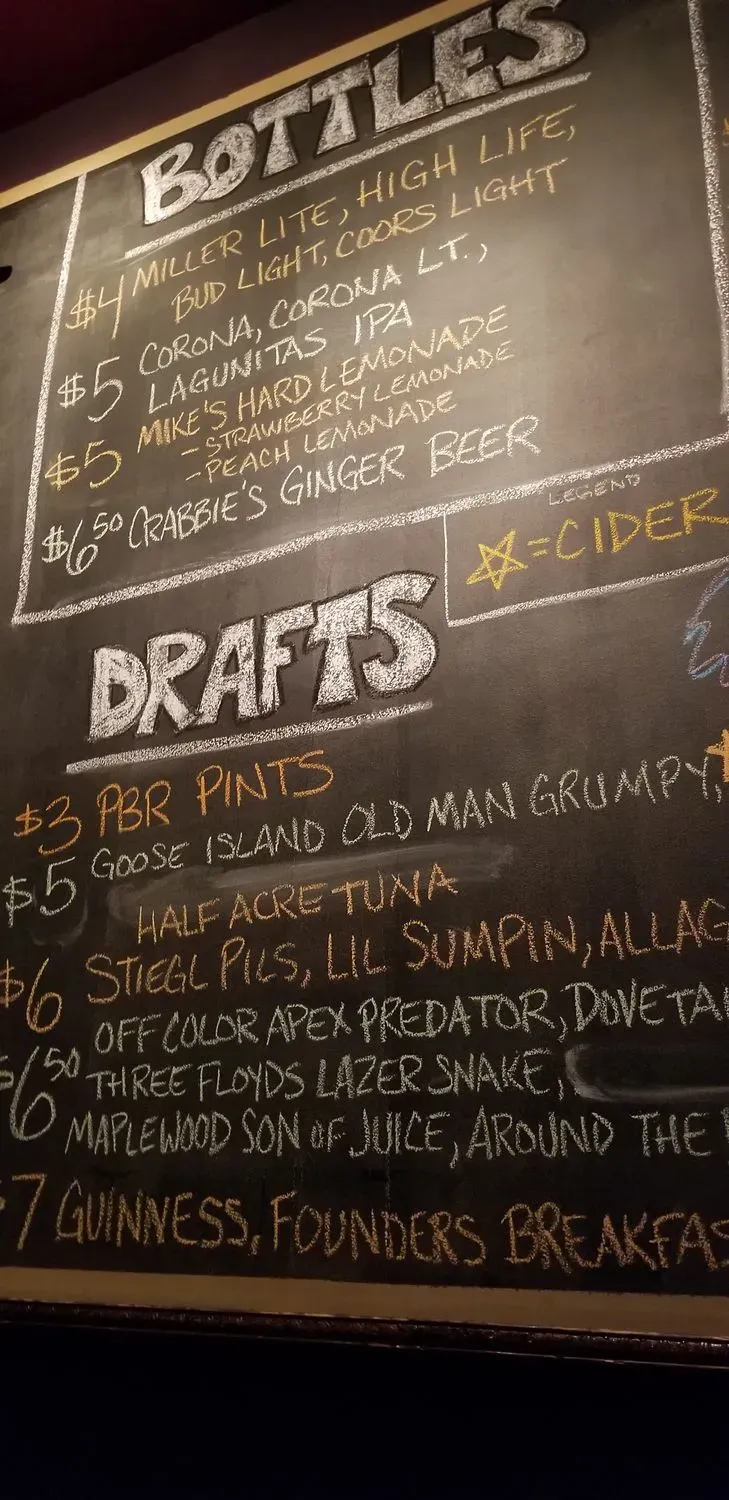 BOTTLES
$4 MILLER LITE, HIGH LIFE,
BUD LIGHT, COORS LIGHT
$5 CORONA, CORONA LT.,
LAGUNITAS IPA
$5 MIKE'S HARD LEMONADE
-STRAWBERRY LEMONADE
-PEACH LEMONADE
$6.50 CRABBIE'S GINGER BEER
LEGEND
☆=CIDER
DRAFTS
$3 PBR PINTS
$5 GOOSE ISLAND OLD MAN GRUMPY,
HALF ACRE TUNA
$6 STIEGL PILS, LIL SUMPIN, ALLAG
$6.50 OFF COLOR APEX PREDATOR, DOVETA
THREE FLOYDS LAZER SNAKE,
MAPLEWOOD SON OF JUICE, AROUND THE
$7 GUINNESS, FOUNDERS BREAKFAS